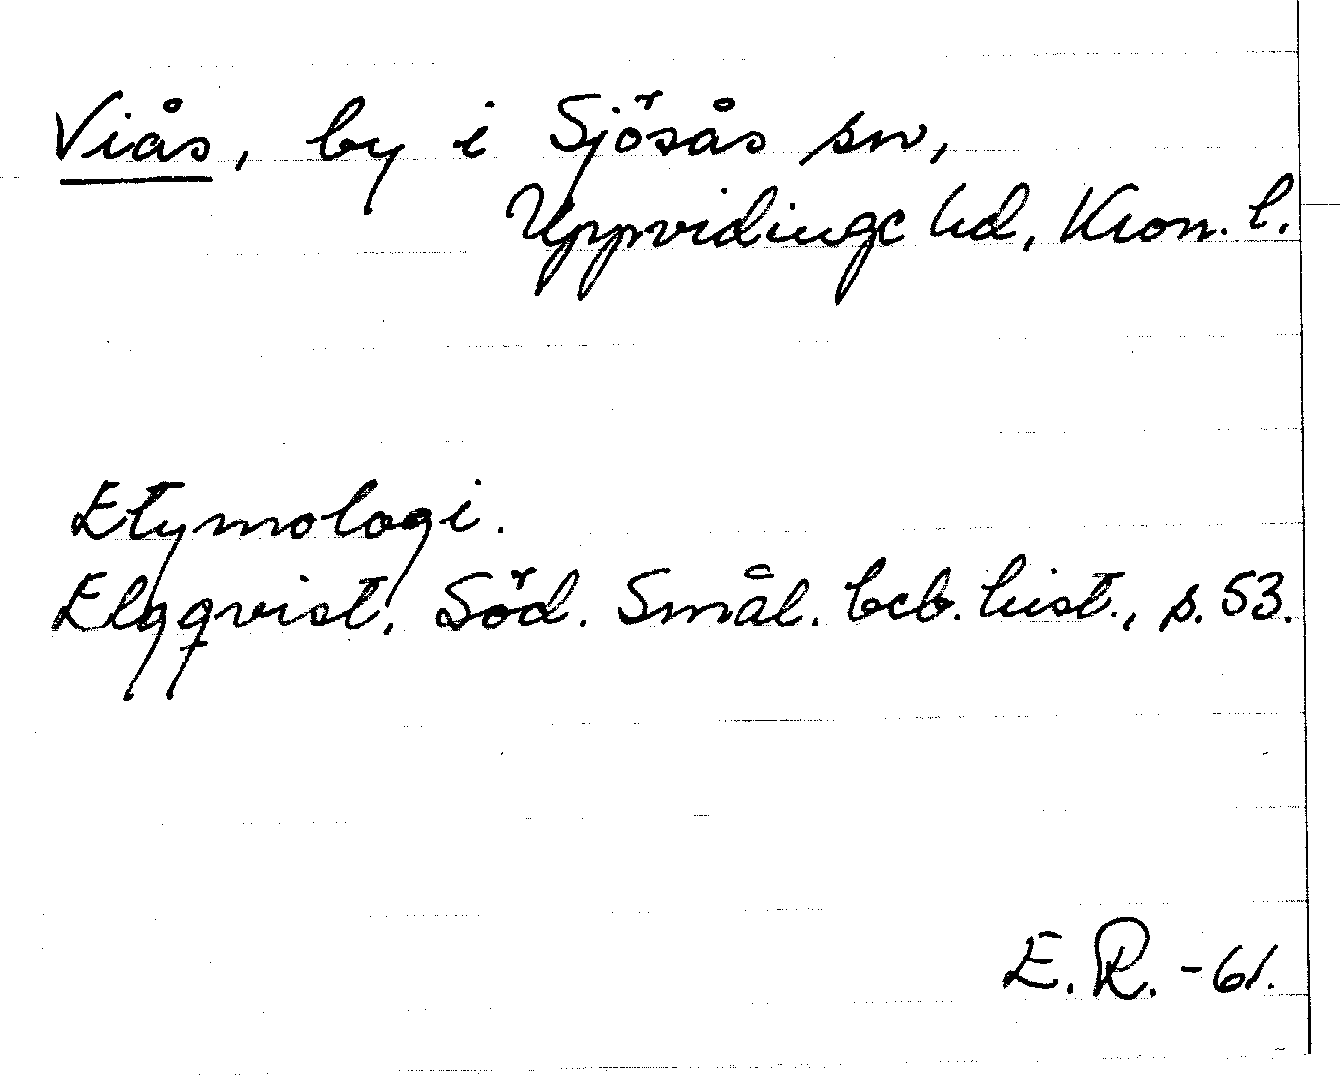 Viås, by i Sjösås sn,
Uppvidinge hd, Kron. l.
Etymologi.
Elgqvist, Söd. Smål. beb. hist., s. 53.
E. R. -61.